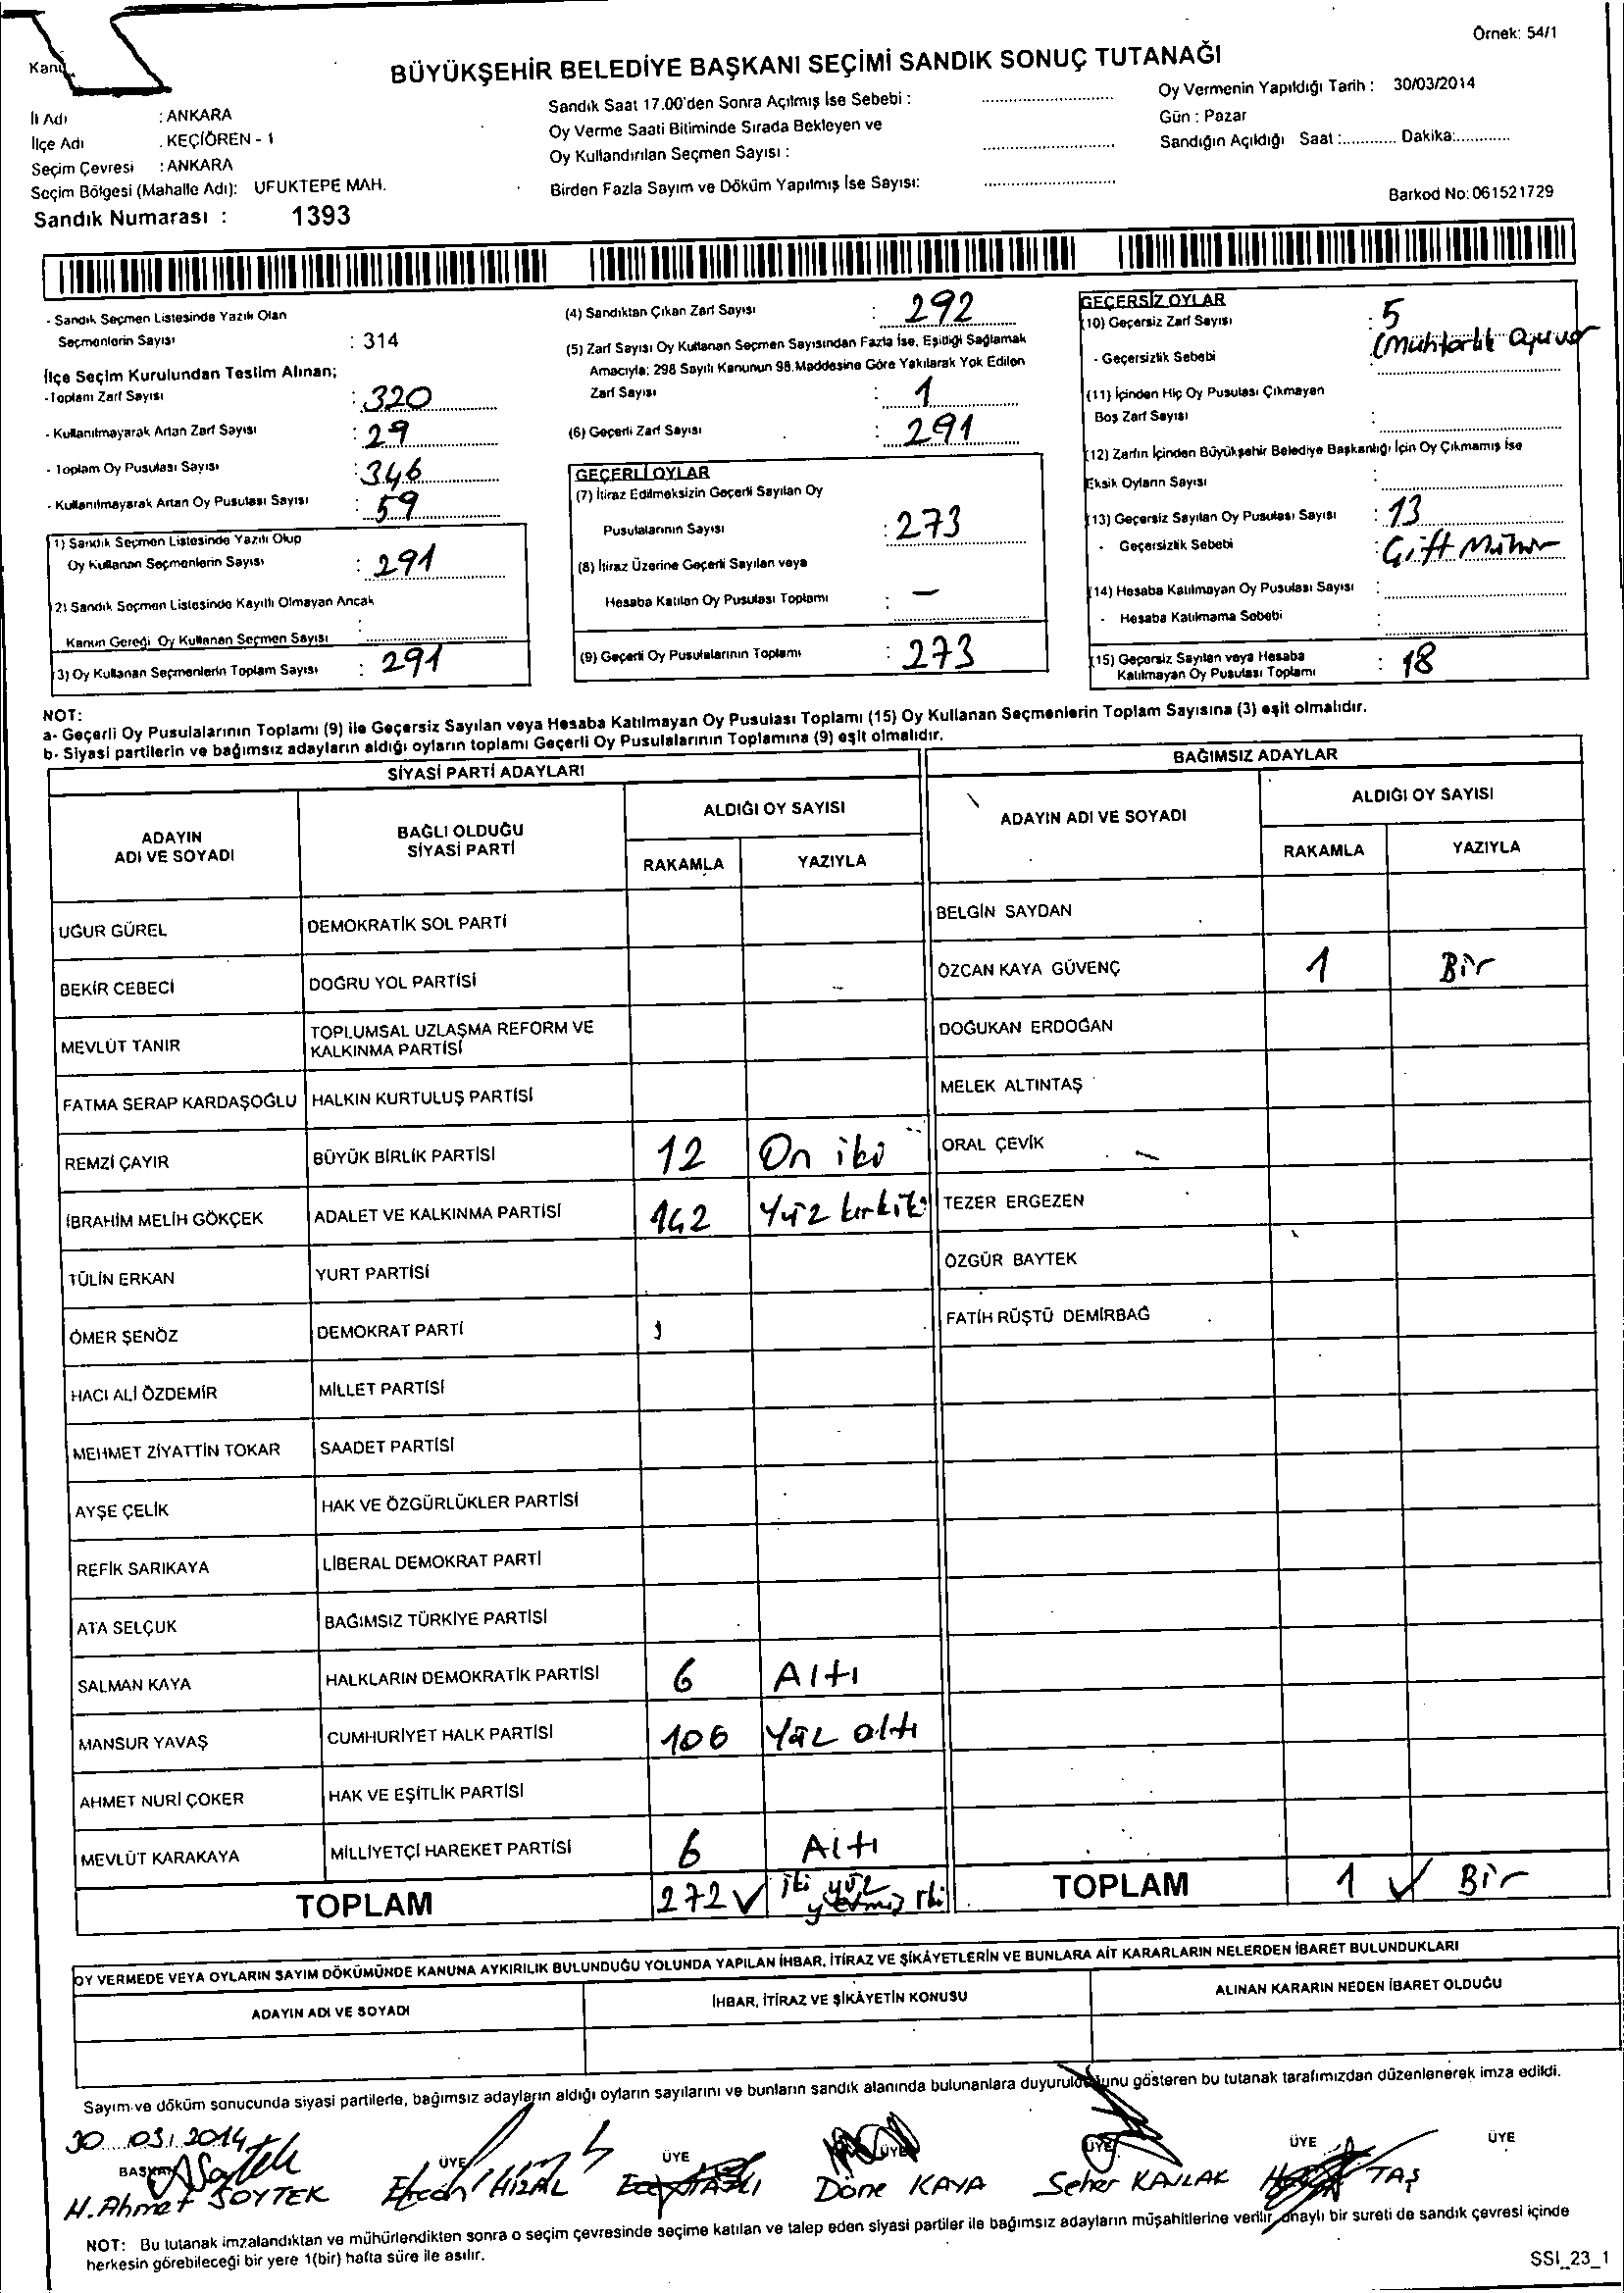 Örnek: 54/1
BÜYÜKŞEHİR BELEDİYE BAŞKANI SEÇİMİ SANDIK SONUÇ TUTANAĞI
İl Adı : ANKARA
İlçe Adı : KEÇİÖREN - 1
Seçim Çevresi : ANKARA
Seçim Bölgesi (Mahalle Adı): UFUKTEPE MAH.
Sandık Numarası : 1393
Sandık Saat 17.00'den Sonra Açılmış İse Sebebi :
Oy Verme Saati Bitiminde Sırada Bekleyen ve
Oy Kullandırılan Seçmen Sayısı :
Birden Fazla Sayım ve Döküm Yapılmış İse Sayısı:
Oy Vermenin Yapıldığı Tarih : 30/03/2014
Gün : Pazar
Sandığın Açıldığı Saat :............ Dakika:............
Barkod No: 061521729
- Sandık Seçmen Listesinde Yazılı Olan
Seçmenlerin Sayısı : 314
İlçe Seçim Kurulundan Teslim Alınan;
- Toplam Zarf Sayısı : 320
- Kullanılmayarak Artan Zarf Sayısı : 29
- Toplam Oy Pusulası Sayısı : 346
- Kullanılmayarak Artan Oy Pusulası Sayısı : 59
1) Sandık Seçmen Listesinde Yazılı Olup
Oy Kullanan Seçmenlerin Sayısı : 291
2) Sandık Seçmen Listesinde Kayıtlı Olmayan Ancak
Kanun Gereği Oy Kullanan Seçmen Sayısı :
3) Oy Kullanan Seçmenlerin Toplam Sayısı : 291
(4) Sandıktan Çıkan Zarf Sayısı : 292
(5) Zarf Sayısı Oy Kullanan Seçmen Sayısından Fazla İse, Eşitliği Sağlamak
Amacıyla; 298 Sayılı Kanunun 98.Maddesine Göre Yakılarak Yok Edilen
Zarf Sayısı : 1
(6) Geçerli Zarf Sayısı : 291
GEÇERLİ OYLAR
(7) İtiraz Edilmeksizin Geçerli Sayılan Oy
Pusulalarının Sayısı : 273
(8) İtiraz Üzerine Geçerli Sayılan veya
Hesaba Katılan Oy Pusulası Toplamı : —
(9) Geçerli Oy Pusulalarının Toplamı : 273
GEÇERSİZ OYLAR
(10) Geçersiz Zarf Sayısı : 5
- Geçersizlik Sebebi : (Muhtarlık
(11) İçinden Hiç Oy Pusulası Çıkmayan
Boş Zarf Sayısı :
(12) Zarfın İçinden Büyükşehir Belediye Başkanlığı İçin Oy Çıkmamış İse
Eksik Oyların Sayısı :
(13) Geçersiz Sayılan Oy Pusulası Sayısı : 13
- Geçersizlik Sebebi : Çift Mühür
(14) Hesaba Katılmayan Oy Pusulası Sayısı :
- Hesaba Katılmama Sebebi :
(15) Geçersiz Sayılan veya Hesaba
Katılmayan Oy Pusulası Toplamı : 18
NOT:
a- Geçerli Oy Pusulalarının Toplamı (9) ile Geçersiz Sayılan veya Hesaba Katılmayan Oy Pusulası Toplamı (15) Oy Kullanan Seçmenlerin Toplam Sayısına (3) eşit olmalıdır.
b- Siyasi partilerin ve bağımsız adayların aldığı oyların toplamı Geçerli Oy Pusulalarının Toplamına (9) eşit olmalıdır.
SİYASİ PARTİ ADAYLARI
ADAYIN ADI VE SOYADI
BAĞLI OLDUĞU SİYASİ PARTİ
ALDIĞI OY SAYISI
RAKAMLA YAZIYLA
UĞUR GÜREL DEMOKRATİK SOL PARTİ
BEKİR CEBECİ DOĞRU YOL PARTİSİ
MEVLÜT TANIR TOPLUMSAL UZLAŞMA REFORM VE KALKINMA PARTİSİ
FATMA SERAP KARDAŞOĞLU HALKIN KURTULUŞ PARTİSİ
REMZİ ÇAYIR BÜYÜK BİRLİK PARTİSİ 12 On iki
İBRAHİM MELİH GÖKÇEK ADALET VE KALKINMA PARTİSİ 142 Yüz kırkiki
TÜLİN ERKAN YURT PARTİSİ
ÖMER ŞENÖZ DEMOKRAT PARTİ
HACI ALİ ÖZDEMİR MİLLET PARTİSİ
MEHMET ZİYATTİN TOKAR SAADET PARTİSİ
AYŞE ÇELİK HAK VE ÖZGÜRLÜKLER PARTİSİ
REFİK SARIKAYA LİBERAL DEMOKRAT PARTİ
ATA SELÇUK BAĞIMSIZ TÜRKİYE PARTİSİ
SALMAN KAYA HALKLARIN DEMOKRATİK PARTİSİ 6 Altı
MANSUR YAVAŞ CUMHURİYET HALK PARTİSİ 106 Yüz altı
AHMET NURİ ÇOKER HAK VE EŞİTLİK PARTİSİ
MEVLÜT KARAKAYA MİLLİYETÇİ HAREKET PARTİSİ 6 Altı
TOPLAM 272 ✓ iki yüz yetmiş iki
BAĞIMSIZ ADAYLAR
ADAYIN ADI VE SOYADI
ALDIĞI OY SAYISI
RAKAMLA YAZIYLA
BELGİN SAYDAN
ÖZCAN KAYA GÜVENÇ 1 Bir
DOĞUKAN ERDOĞAN
MELEK ALTINTAŞ
ORAL ÇEVİK
TEZER ERGEZEN
ÖZGÜR BAYTEK
FATİH RÜŞTÜ DEMİRBAĞ
TOPLAM 1 ✓ Bir
OY VERMEDE VEYA OYLARIN SAYIM DÖKÜMÜNDE KANUNA AYKIRILIK BULUNDUĞU YOLUNDA YAPILAN İHBAR, İTİRAZ VE ŞİKÂYETLERİN VE BUNLARA AİT KARARLARIN NELERDEN İBARET BULUNDUKLARI
ADAYIN ADI VE SOYADI İHBAR, İTİRAZ VE ŞİKÂYETİN KONUSU ALINAN KARARIN NEDEN İBARET OLDUĞU
Sayım ve döküm sonucunda siyasi partilerle, bağımsız adayların aldığı oyların sayılarını ve bunların sandık alanında bulunanlara duyurulduğunu gösteren bu tutanak tarafımızdan düzenlenerek imza edildi.
30 03. 2014
BAŞKAN ÜYE ÜYE ÜYE ÜYE ÜYE ÜYE
H. Ahmet SOYTEK Ercan HIZAL Döne KAYA Seher KAVLAK TAŞ
NOT: Bu tutanak imzalandıktan ve mühürlendikten sonra o seçim çevresinde seçime katılan ve talep eden siyasi partiler ile bağımsız adayların müşahitlerine verilir, onaylı bir sureti de sandık çevresi içinde
herkesin görebileceği bir yere 1(bir) hafta süre ile asılır.
SSI_23_1